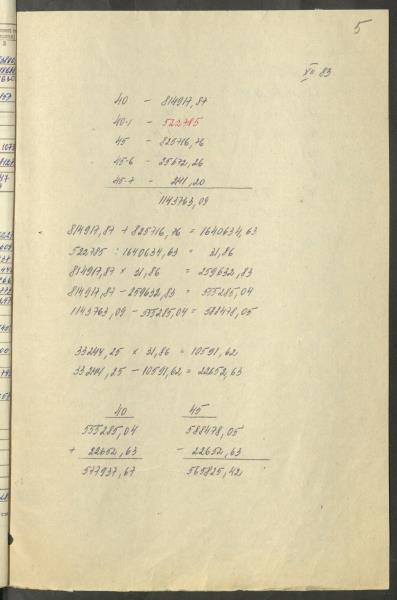 5
XII 83
40 - 814917,87
40-1 - 522785
45 - 825716,76
45-6 - 25672,26
45-7 - 241,20
1143763,09
814917,87 + 825716,76 = 1640634,63
522785 : 1640634,63 = 31,86
814917,87 × 31,86 = 259632,83
814917,87 - 259632,83 = 555285,04
1143763,09 - 555285,04 = 588478,05
33244,25 × 31,86 = 10591,62
33244,25 - 10591,62 = 22652,63
40 45
555285,04 588478,05
+ 22652,63 - 22652,63
577937,67 565825,42